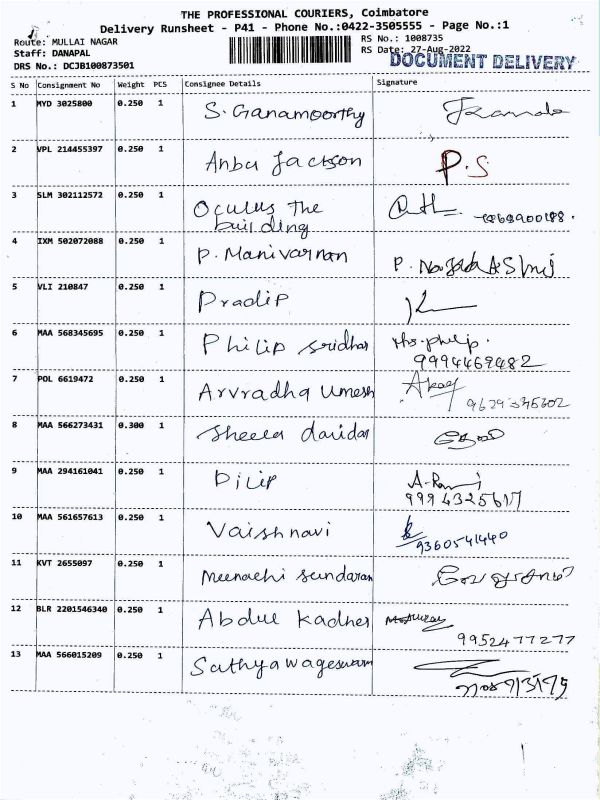 THE PROFESSIONAL COURIERS, Coimbatore
Delivery Runsheet - P41 - Phone No.:0422-3505555 - Page No.:1
Route: MULLAI NAGAR RS No.: 1008735
Staff: DANAPAL RS Date: 27-Aug-2022
DOCUMENT DELIVERY
DRS No.: DCJB100873501
S No Consignment No Weight PCS Consignee Details Signature
1 MYD 3025800 0.250 1 S. Ganamoorthy
2 VPL 214455397 0.250 1 Anbu Jackson P.S
3 SLM 302112572 0.250 1 Oculus The
building
4 IXM 502072088 0.250 1 P. Manivarnan P.
5 VLI 210847 0.250 1 Pradip
6 MAA 568345695 0.250 1 Philip sridhar Mrs. philip.
9994469482
7 POL 6619472 0.250 1 Arvradha Umesh
8 MAA 566273431 0.300 1 Sheela daridar
9 MAA 294161041 0.250 1 Dilip
9994325617
10 MAA 561657613 0.250 1 Vaishnavi
9360541440
11 KVT 2655097 0.250 1 Meenachi sundaran
12 BLR 2201546340 0.250 1 Abdul Kadher
9952477277
13 MAA 566015209 0.250 1 Sathyawageswam